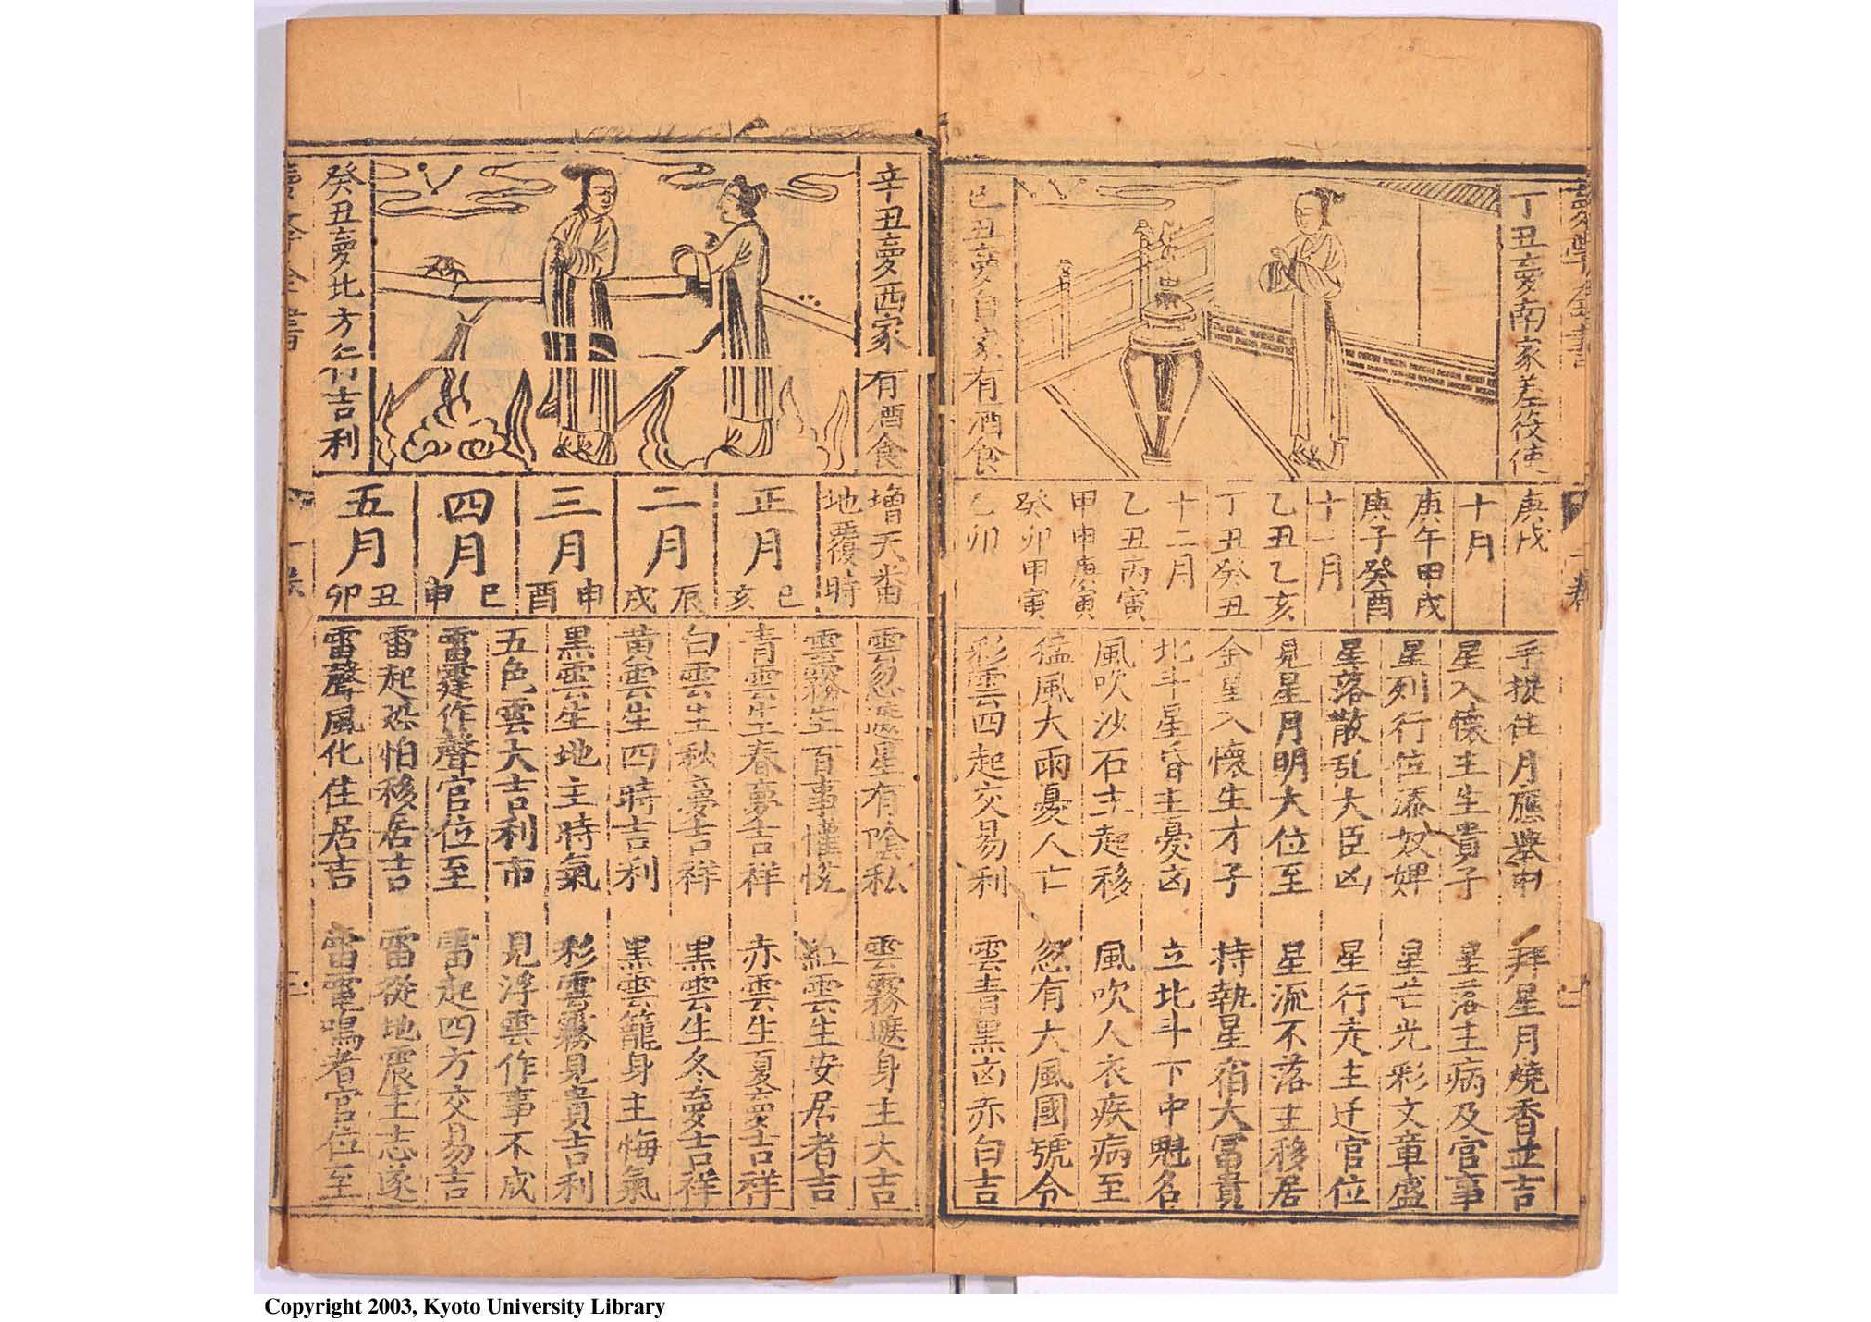 丁丑夣南家差筊使
己丑夢自家有酒食
庚戌
十月
庚午甲戌
庚子癸酉
十一月
乙丑乙亥
丁丑癸丑
十二月
乙丑丙寅
甲申庚寅
癸卯甲寅
乙卯
手捉住月應舉中 拜星月燒香並吉
星入懷主生貴子 星落主病及官事
星列行位添奴婢 星芒光彩文章盛
星落散乱大臣凶 星行走主迁官位
見星月明大位至 星流不落主移居
金星入懷生才子 持執星宿大冨貴
北斗星昏主憂凶 立北斗下中魁名
風吹沙石主起移 風吹人衣疾病至
猛風大雨憂人亡 忽有大風國號令
彩雲四起交易利 雲青黑凶赤白吉
辛丑夣西家有酒食
癸丑夣北方仁行吉利
增天番
地覆時
正月
巳亥
二月
辰戌
三月
申酉
四月
巳申
五月
丑卯
雲忽遮星有陰私 雲霧遮身主大吉
雲霧生百事懽悅 紅雲生安居者吉
青雲生春夣吉祥 赤雲生夏夣吉祥
白雲生秋夣吉祥 黒雲生冬夣吉祥
黄雲生四時吉利 黒雲籠身主悔氣
黒雲生地主時氣 彩雲霧見貴吉利
五色雲大吉利市 見浮雲作事不成
雷霆作聲官位至 雷起四方交易吉
雷起恐怕移居吉 雷從地震主志遂
雷聲風化住居吉 雷霆鳴者官位至
Copyright 2003, Kyoto University Library